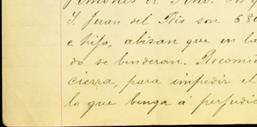 S. Juan del Rio son 680
e hijo, abisan que en la
do se benderan. Recomi
cierra, para impedir el
lo que benga á perjudic